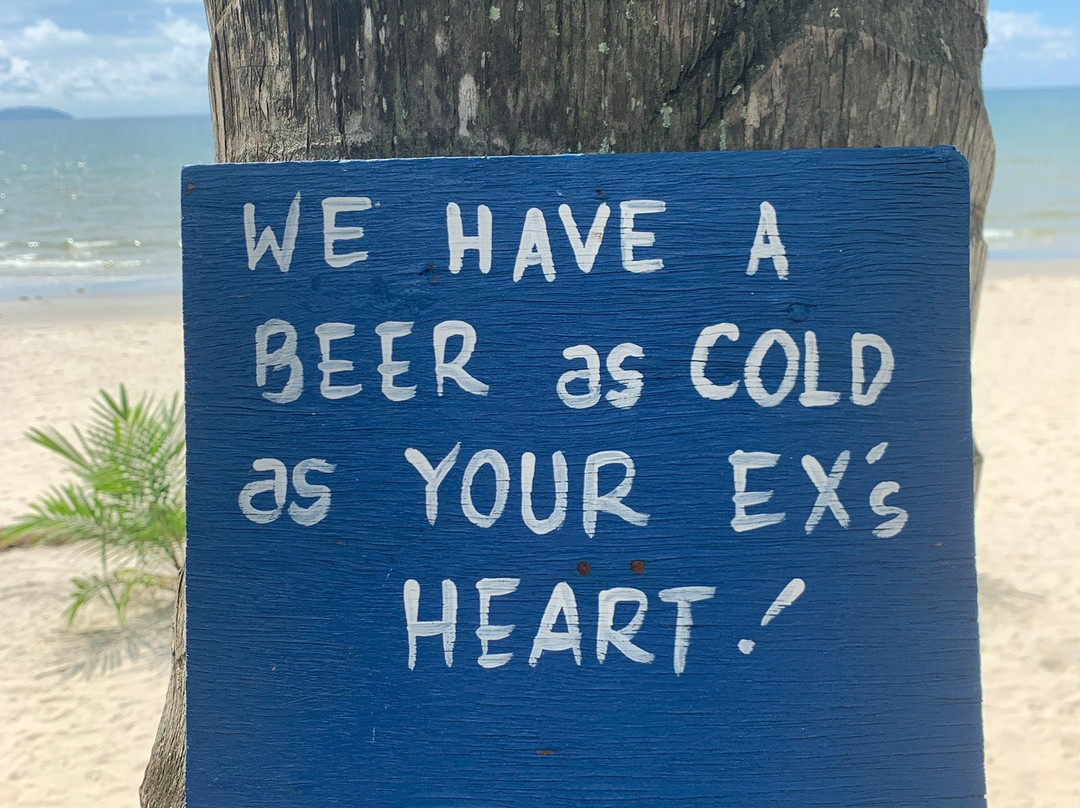 WE HAVE A
BEER as COLD
as YOUR EX's
HEART!